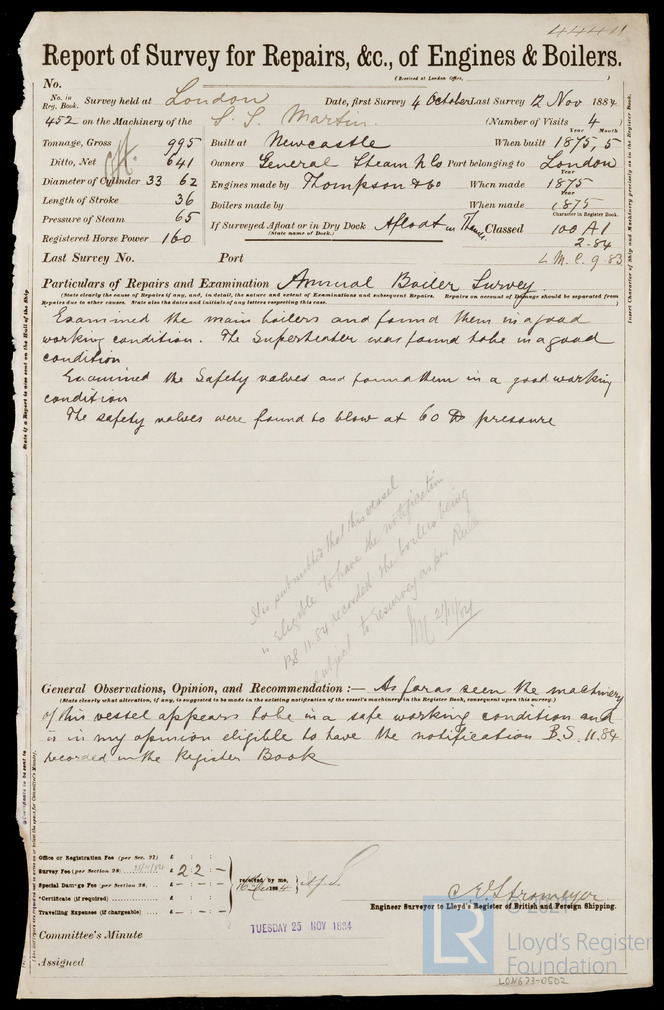 44411
Report of Survey for Repairs, &c., of Engines & Boilers.
(Received at London Office, )
No.
No. in Reg. Book. Survey held at London Date, first Survey 4 October Last Survey 12 Nov 1884
452 on the Machinery of the S.S. Martin (Number of Visits 4 )
Tonnage, Gross 995 Built at Newcastle When built Year Month 1875, 5
Ditto, Net 641 Owners General Steam N Co Port belonging to London
Diameter of Cylinder 33 62 Engines made by Thompson & Co When made Year 1875
Length of Stroke 36 Boilers made by When made Year 1875
Pressure of Steam 65 If Surveyed Afloat or in Dry Dock Afloat in Thames. Classed Character in Register Book. 100 A1
(State name of Dock.)
Registered Horse Power 160 2.84
Last Survey No. Port L.M.C. 9.83
Particulars of Repairs and Examination Annual Boiler Survey.
(State clearly the cause of Repairs if any, and, in detail, the nature and extent of Examinations and subsequent Repairs. Repairs on account of Damage should be separated from
Repairs due to other causes. State also the dates and initials of any letters respecting this case.
Examined the main boilers and found them in a good
working condition. The Superheater was found to be in a good
condition
Examined the Safety valves and found them in a good working
condition
The safety valves were found to blow at 60 lb pressure
It is submitted that this vessel
is eligible to have the notification
BS 11.84 recorded the boilers being
subject to resurvey as per Rule
21/11/84
General Observations, Opinion, and Recommendation :— As far as seen the machinery
(State clearly what alteration, if any, is suggested to be made in the existing notification of the vessel's machinery in the Register Book, consequent upon this survey.)
of this vessel appears to be in a safe working condition and
is in my opinion eligible to have the notification B.S. 11.84
recorded in the Register Book
Office or Registration Fee (per Sec. 27) £ : :
Survey Fee (per Section 28) £ 2 2 : —
Special Damage Fee (per Section 28) £ — : — : —
*Certificate (if required) £ — : — : —
Travelling Expenses (if chargeable) £ — : — : —
received by me,
C E Stromeyer
Engineer Surveyor to Lloyd's Register of British and Foreign Shipping.
Committee's Minute
TUESDAY 25 NOV 1884
Assigned
State if a Report is also sent on the Hull of the Ship.
Insert Character of Ship and Machinery precisely as in the Register Book.
© 2021
LR
Lloyd's Register
Foundation
LON673-0502